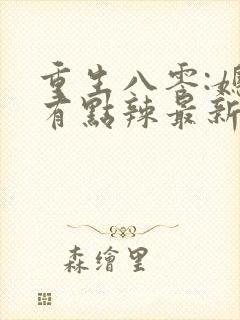 重生八零:媳
有點辣最新
森繪里